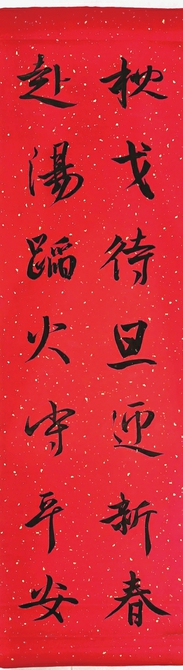 枕戈待旦迎新春
赴湯蹈火守平安